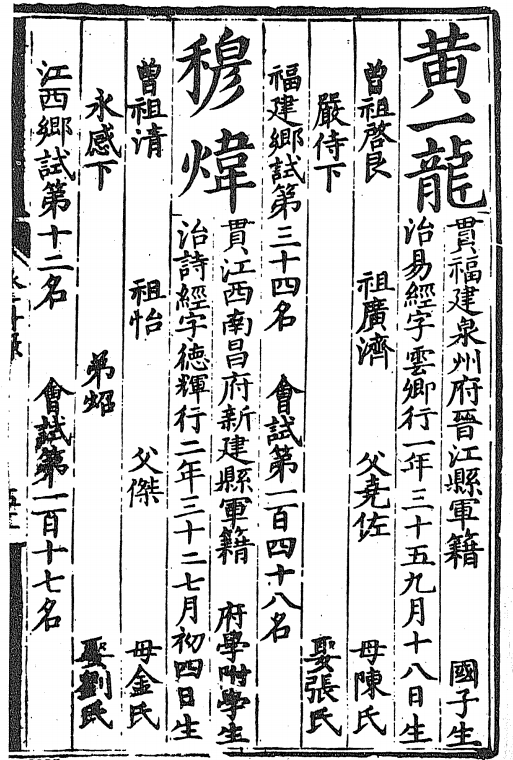 黄一龍
貫福建泉州府晉江縣軍籍 國子生
治易經字雲卿行一年三十五九月十八日生
曾祖啓艮 祖廣濟 父堯佐 母陳氏
嚴侍下 娶張氏
福建鄉試第三十四名 會試第一百四十八名
穆煒
貫江西南昌府新建縣軍籍 府學附學生
治詩經字德輝行二年三十二七月初四日生
曾祖清 祖怡 父傑 母金氏
永感下 弟炤 娶劉氏
江西鄉試第十二名 會試第一百十七名